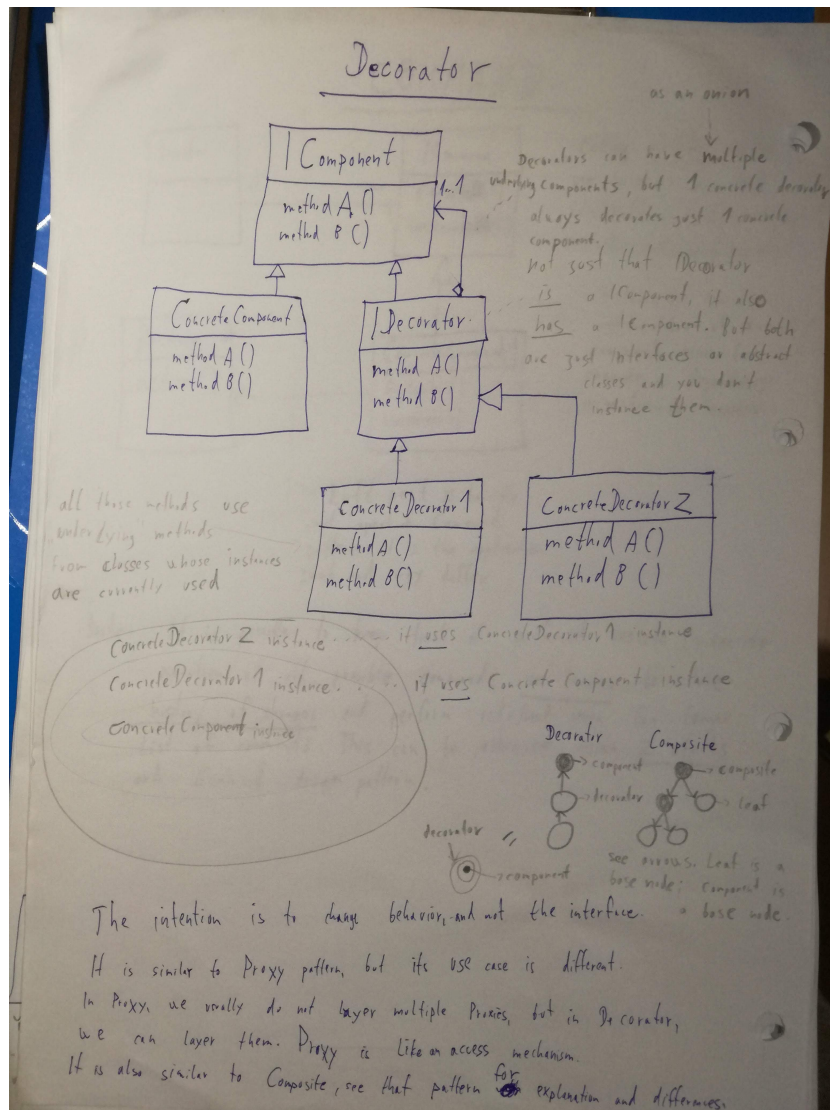 Decorator
as an onion
IComponent
method A ()
method B ()
1..1
Decorators can have multiple
underlying components, but 1 concrete decorator
always decorates just 1 concrete
component.
not just that IDecorator
is a IComponent, it also
has a IComponent. But both
are just interfaces or abstract
classes and you don't
instance them.
ConcreteComponent
method A ()
method B ()
IDecorator
method A ()
method B ()
ConcreteDecorator 1
method A ()
method B ()
ConcreteDecorator 2
method A ()
method B ()
all those methods use
underlying methods
from classes whose instances
are currently used
ConcreteDecorator 2 instance ...... it uses ConcreteDecorator 1 instance
ConcreteDecorator 1 instance...... it uses Concrete Component instance
ConcreteComponent instance
Decorator
component
decorator
Composite
composite
leaf
decorator
component
see arrows. Leaf is a
base node; component is
a base node.
The intention is to change behavior, and not the interface.
It is similar to Proxy pattern, but its use case is different.
In Proxy, we usually do not layer multiple Proxies, but in Decorator,
we can layer them. Proxy is like an access mechanism.
It is also similar to Composite, see that pattern for explanation and differences.